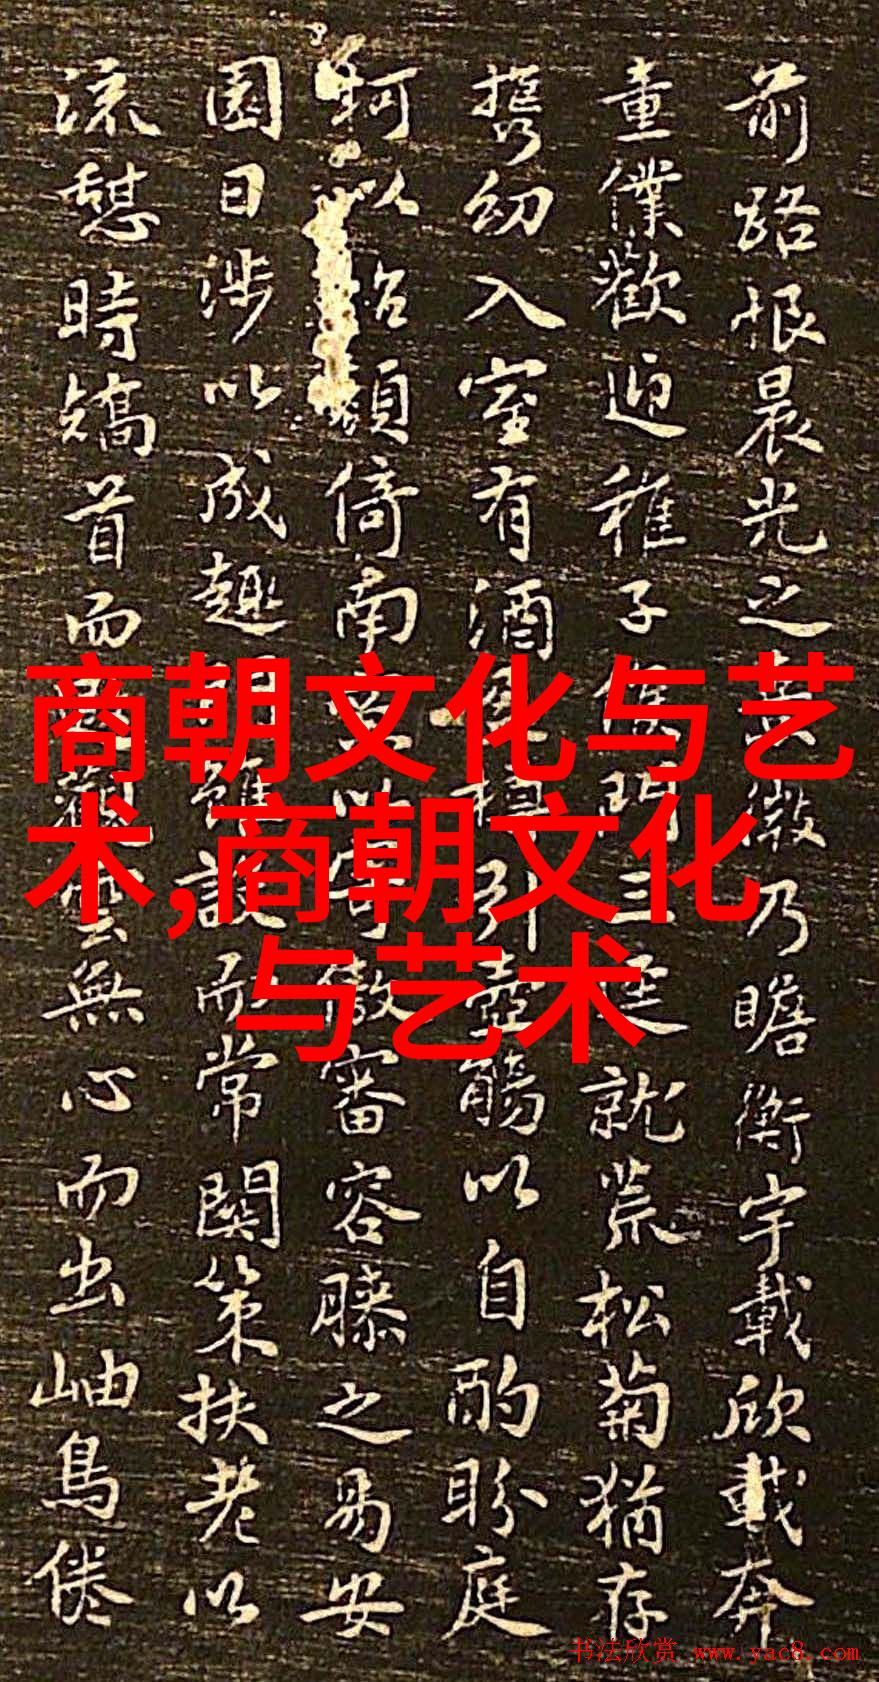 前路恨晨光之微乃瞻衡宇載欣載奔
童僕歡迎稚子候門三逕就荒松菊猶存
攜幼入室有酒樽引壺觴以自酌盼庭
柯以怡顏倚南窓以寄傲審容膝之易安
園日涉以成趣門雖設而常關策扶老以
流憩時矯首而觀雲無心而出岫鳥倦
商朝文化与艺
术,商朝文化
与艺术
书法欣赏 www.yac8.com